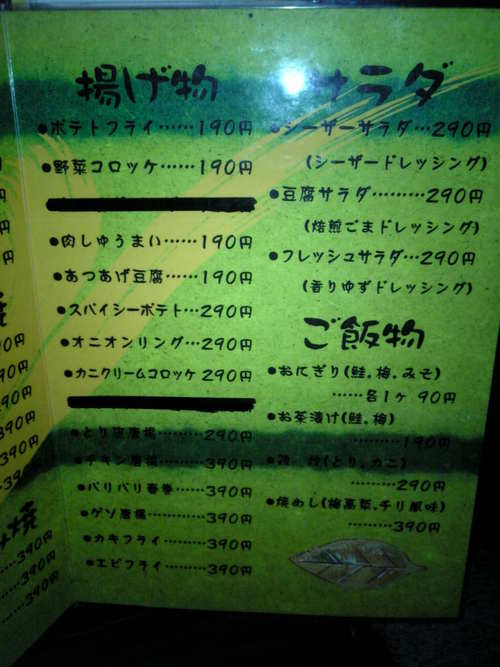 揚げ物
●ポテトフライ……190円
●野菜コロッケ……190円
●肉しゅうまい……190円
●あつあげ豆腐……190円
●スパイシーポテト…290円
●オニオンリング…290円
●カニクリームコロッケ 290円
●とり 唐揚………290円
●チキン唐揚………390円
●パリパリ春巻………390円
●ゲソ唐揚………390円
●カキフライ………390円
●エビフライ………390円
サラダ
●シーザーサラダ…290円
(シーザードレッシング)
●豆腐サラダ………290円
(焙煎ごまドレッシング)
●フレッシュサラダ…290円
(香りゆずドレッシング)
ご飯物
●おにぎり(鮭,梅,みそ)
……各1ヶ 90円
●お茶漬け(鮭,梅)
………190円
●(とり,カニ)
………290円
●焼めし(梅高菜,チリ風味)
………390円
焼
390円
390円
390円
390円
390円
390円